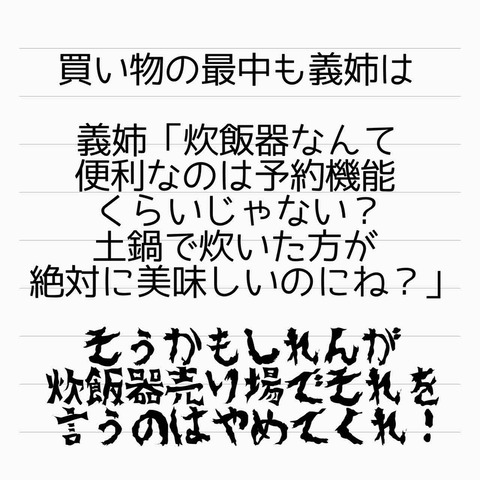 買い物の最中も義姉は
義姉「炊飯器なんて
便利なのは予約機能
くらいじゃない？
土鍋で炊いた方が
絶対に美味しいのにね？」
そうかもしれんが
炊飯器売り場でそれを
言うのはやめてくれ！